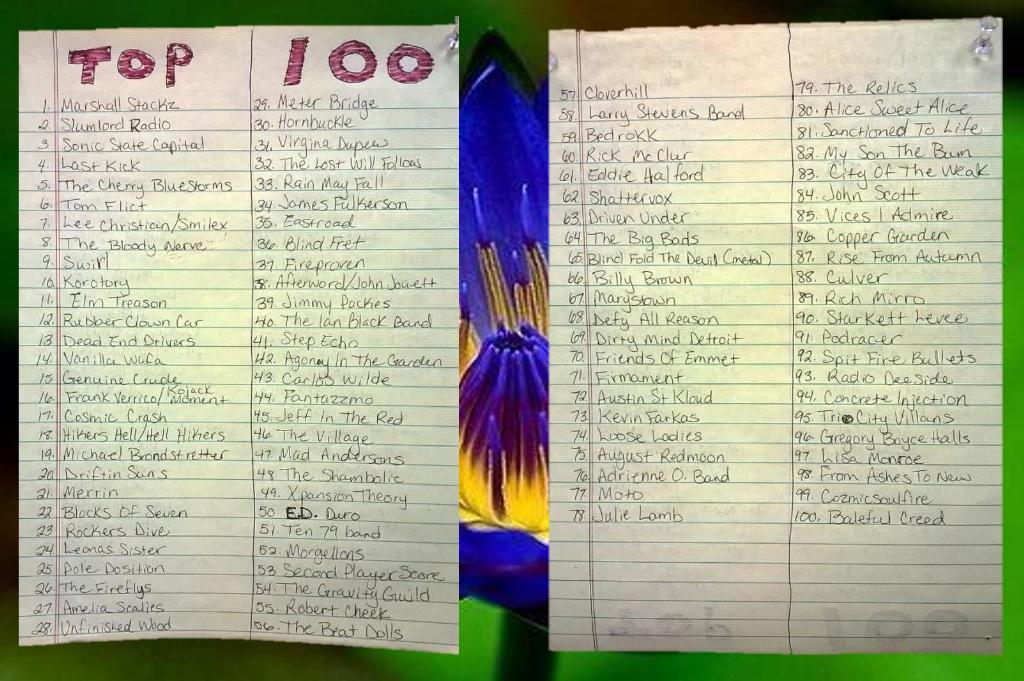 TOP 100
1. Marshall Stackz
2. Slumlord Radio
3 Sonic State Capital
4. Last Kick
5. The Cherry Bluestorms
6. Tom Flict
7. Lee Christian/Smilex
8. The Bloody Nerve
9. Swirl
10. Korotory
11. Elm Treason
12. Rubber Clown Car
13 Dead End Drivers
14. Vanilla Wafa
15 Genuine Crude
16. Frank Verrico/Kojack Moment
17. Cosmic Crash
18. Hikers Hell/Hell Hikers
19. Michael Brandstretter
20. Driftin Suns
21. Merrin
22 Blocks Of Seven
23 Rockers Dive
24 Leonas Sister
25. Pole Position
26 The Fireflys
27. Amelia Scalies
28. Unfinished Wood
29. Meter Bridge
30. Hornbuckle
31. Virgina Dupew
32. The Lost Will Follow
33. Rain May Fall
34. James Fulkerson
35. Eastroad
36. Blind Fret
37. Fireproven
38. Afterword/John Jouett
39. Jimmy Packes
40. The Ian Black Band
41. Step Echo
42. Agony In The Garden
43. Carlos Wilde
44. Fantazzmo
45. Jeff In The Red
46. The Village
47. Mad Andersons
48 The Shambolic
49. Xpansion Theory
50 E.D. Duro
51. Ten 79 band
52. Morgellons
53 Second Player Score
54. The Gravity Guild
55. Robert Cheek
56. The Beat Dolls
57. Cloverhill
58. Larry Stevens Band
59. Bedrokk
60. Rick McClur
61. Eddie Halford
62 Shattervox
63. Driven Under
64 The Big Bads
65 Blind Fold The Devil (metal)
66. Billy Brown
67. Marystown
68. Defy All Reason
69. Dirty Mind Detroit
70. Friends Of Emmet
71. Firmament
72 Austin St Kloud
73. Kevin Farkas
74. Loose Ladies
75. August Redmoon
76. Adrienne O. Band
77. Moto
78. Julie Lamb
79. The Relics
80. Alice Sweet Alice
81. Sanctioned To Life
82. My Son The Bum
83. City Of The Weak
84. John Scott
85. Vices I Admire
86. Copper Garden
87. Rise From Autumn
88. Culver
89. Rich Mirro
90. Starkett Levee
91. Podracer
92. Spit Fire Bullets
93. Radio Deeside
94. Concrete Injection
95. Tri City Villans
96. Gregory Boyce Halls
97. Lisa Monroe
98. From Ashes To New
99. Cozmicsoulfire
100. Baleful Creed